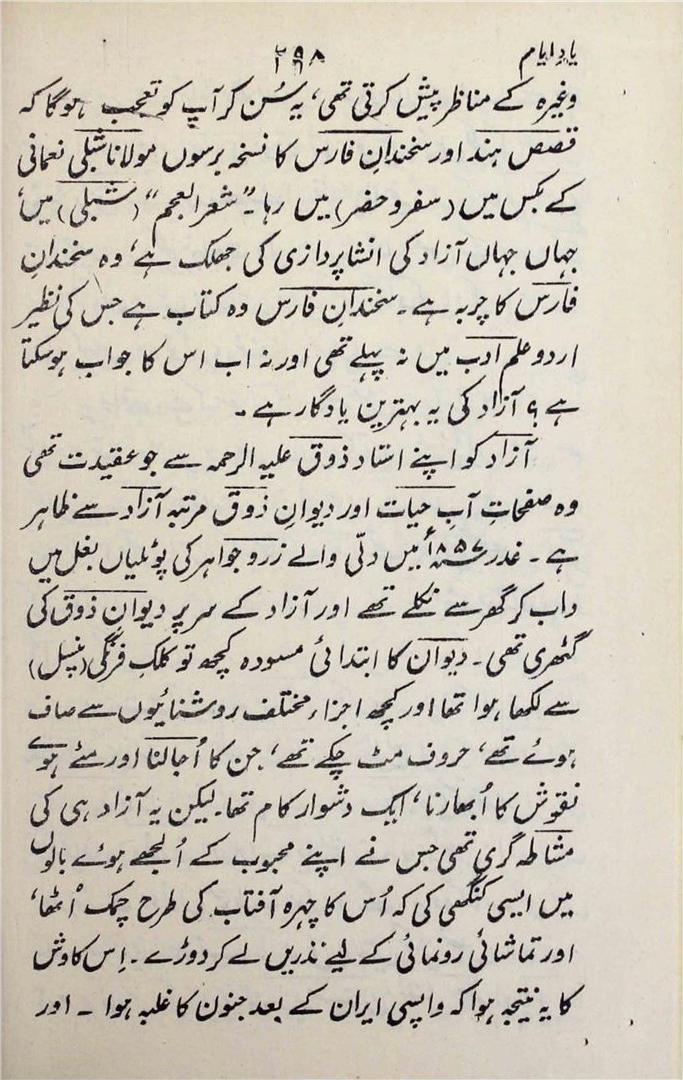 یادِ ایام
۲۹۸
وغیرہ کے مناظر پیش کرتی تھی، یہ سُن کر آپ کو تعجب ہوگا کہ
قصص ہند اور سخندانِ فارس کا نسخہ برسوں مولانا شبلی نعمانی
کے بکس میں (سفر و حضر) میں رہا۔ "شعر العجم" (شبلی) میں،
جہاں جہاں آزاد کی انشا پردازی کی جھلک ہے، وہ سخندانِ
فارس کا چربہ ہے۔ سخندانِ فارس وہ کتاب ہے جس کی نظیر
اردو علم ادب میں نہ پہلے تھی اور نہ اب اس کا جواب ہوسکتا
ہے؟ آزاد کی یہ بہترین یادگار ہے۔
آزاد کو اپنے استاد ذوق علیہ الرحمہ سے جو عقیدت تھی
وہ صفحاتِ آبِ حیات اور دیوانِ ذوق مرتبہ آزاد سے ظاہر
ہے۔ غدر ۱۸۵۷ء میں دلّی والے زر و جواہر کی پوٹلیاں بغل میں
داب کر گھر سے نکلے تھے اور آزاد کے سر پر دیوانِ ذوق کی
گٹھری تھی۔ دیوان کا ابتدائی مسودہ کچھ تو کلکِ فرنگی (پنسل)
سے لکھا ہوا تھا اور کچھ اجزاء مختلف روشنائیوں سے صاف
ہوئے تھے، حروف مٹ چکے تھے، جن کا اُجالنا اور مٹے ہوئے
نقوش کا اُبھارنا، ایک دشوار کام تھا۔ لیکن یہ آزاد ہی کی
مشاطہ گری تھی جس نے اپنے محبوب کے اُلجھے ہوئے بالوں
میں ایسی کنگھی کی کہ اُس کا چہرہ آفتاب کی طرح چمک اُٹھا،
اور تماشائی رونمائی کے لیے نذریں لے کر دوڑے۔ اِس کاوش
کا یہ نتیجہ ہوا کہ واپسی ایران کے بعد جنون کا غلبہ ہوا۔ اور